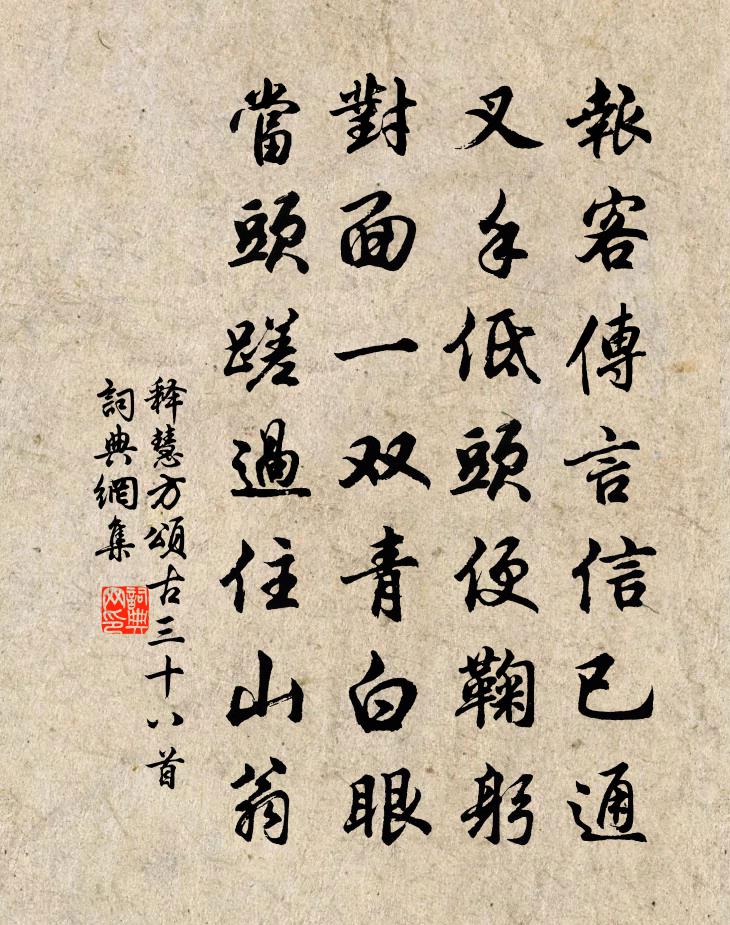 報客傳言信已通
叉手低頭便鞠躬
對面一双青白眼
當頭蹉過住山翁
释慧方頌古三十八首
詞典網集
詞典網印